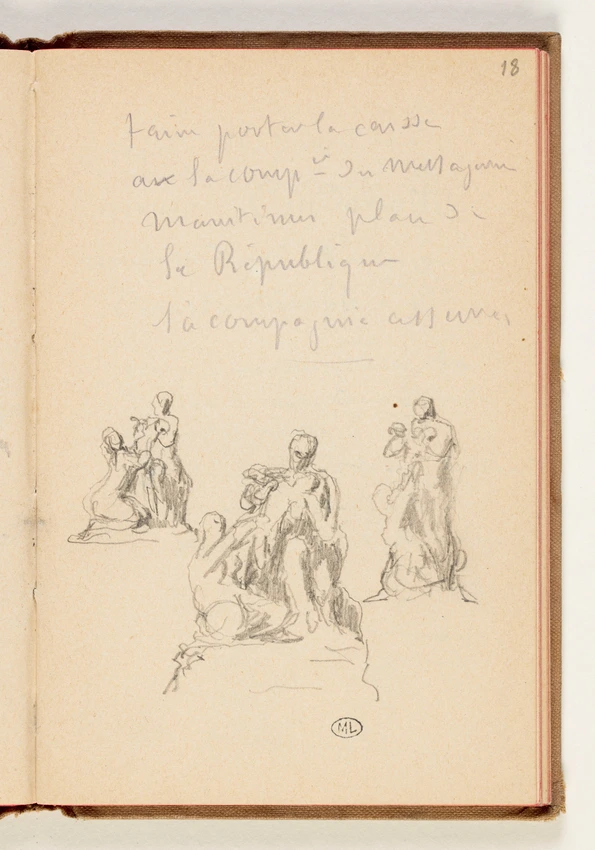 18
faire porter la caisse
aux la compie des messagerie
maritimes place de
la République
la compagnie assurer
ML